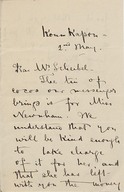 2nd May.
Dear Mr. Scheibel.
The tin of
cocoa our messenger
brings is for Miss
Newnham. We
understand that you
will be kind enough
to take charge
of it for her, and
that she has left
with you the money